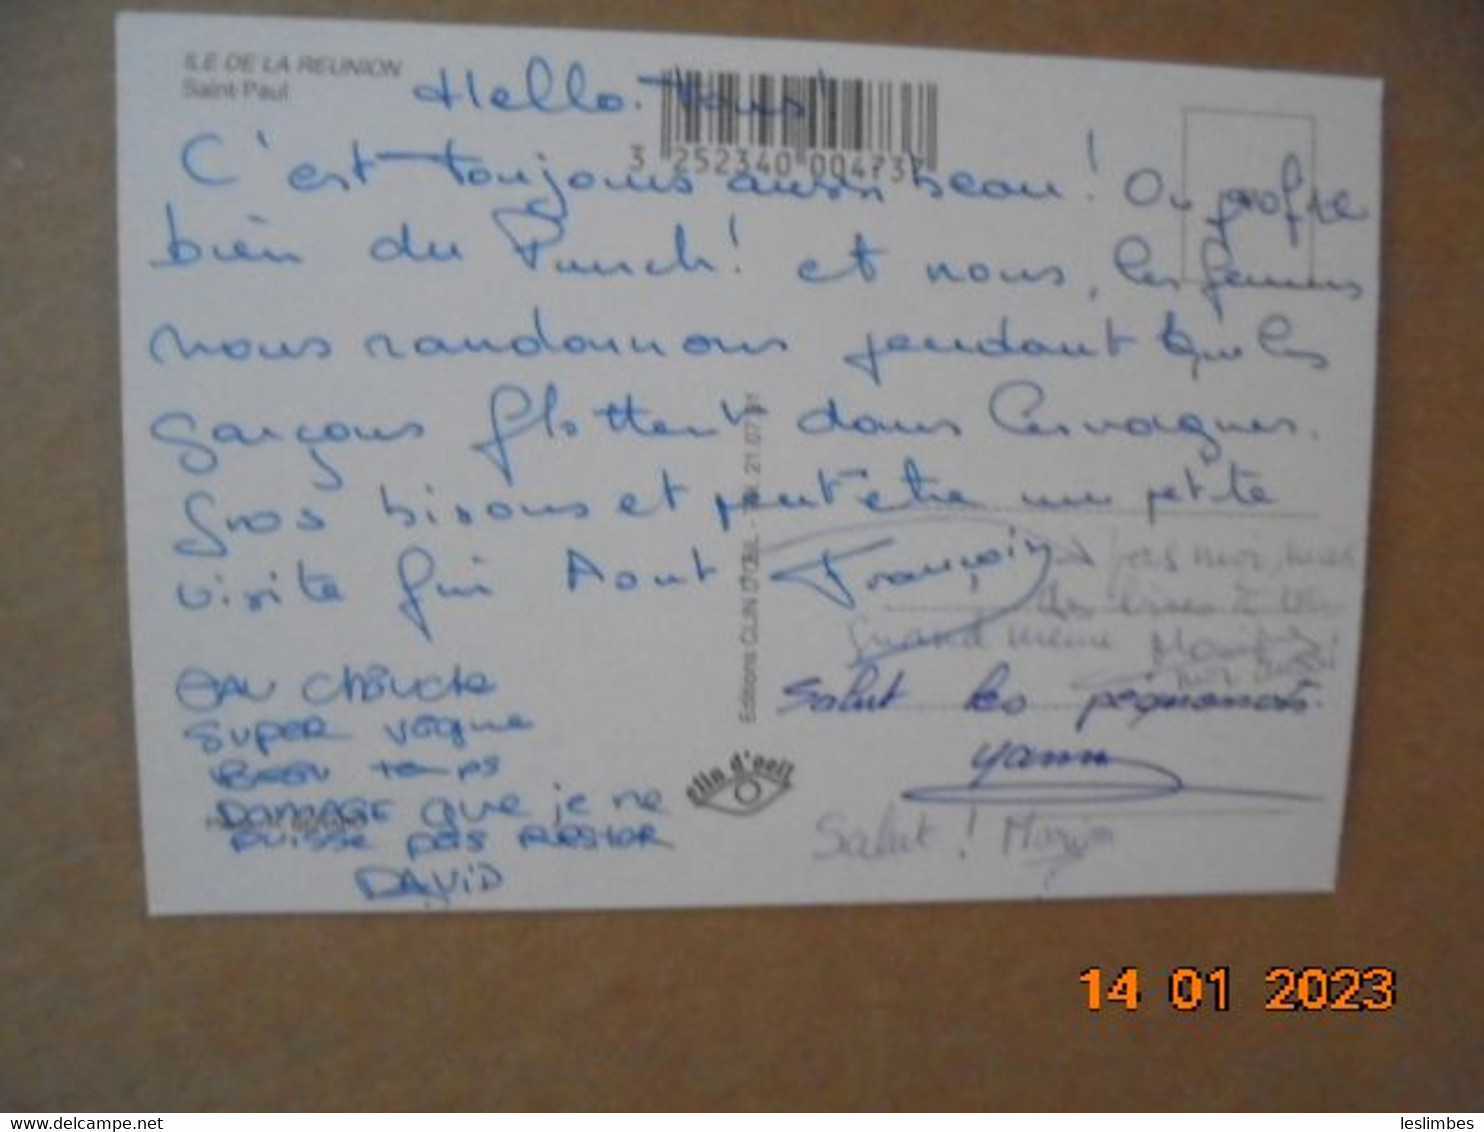 ILE DE LA REUNION
Saint-Paul
Hello. Tous!
3 252340 00473
C'est toujours aussi beau! On profite
bien du Punch! et nous, les femmes
nous randonnons pendant que les
garçons flottent dans les vagues.
Gros bisous et peut être une petite
visite fin Aout François
pas moi, mais
des bises à
quand même
moi aussi
Eau chaude
super vague
Beau temps
Damage que je ne
puisse pas rester
David
Editions CLIN D'ŒIL - Tél. 21.07.
clin d'oeil
Salut les
Yann
Salut! Marin
14 01 2023
leslimbes